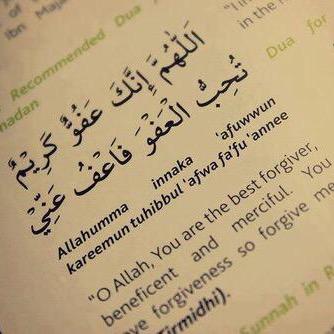 of
Ibn Maja
Recommended Dua
madan
"I
in the
Dua for
اَللّٰهُمَّ إِنَّكَ عَفُوٌّ كَرِيْمٌ
تُحِبُّ الْعَفْوَ فَاعْفُ عَنِّيْ
Allahumma innaka 'afuwwun
kareemun tuhibbul 'afwa fa'fu 'annee
"O Allah, You are the best forgiver,
beneficent and merciful. You
ve forgiveness so forgive m
Tirmidhi).
Sunnah in R